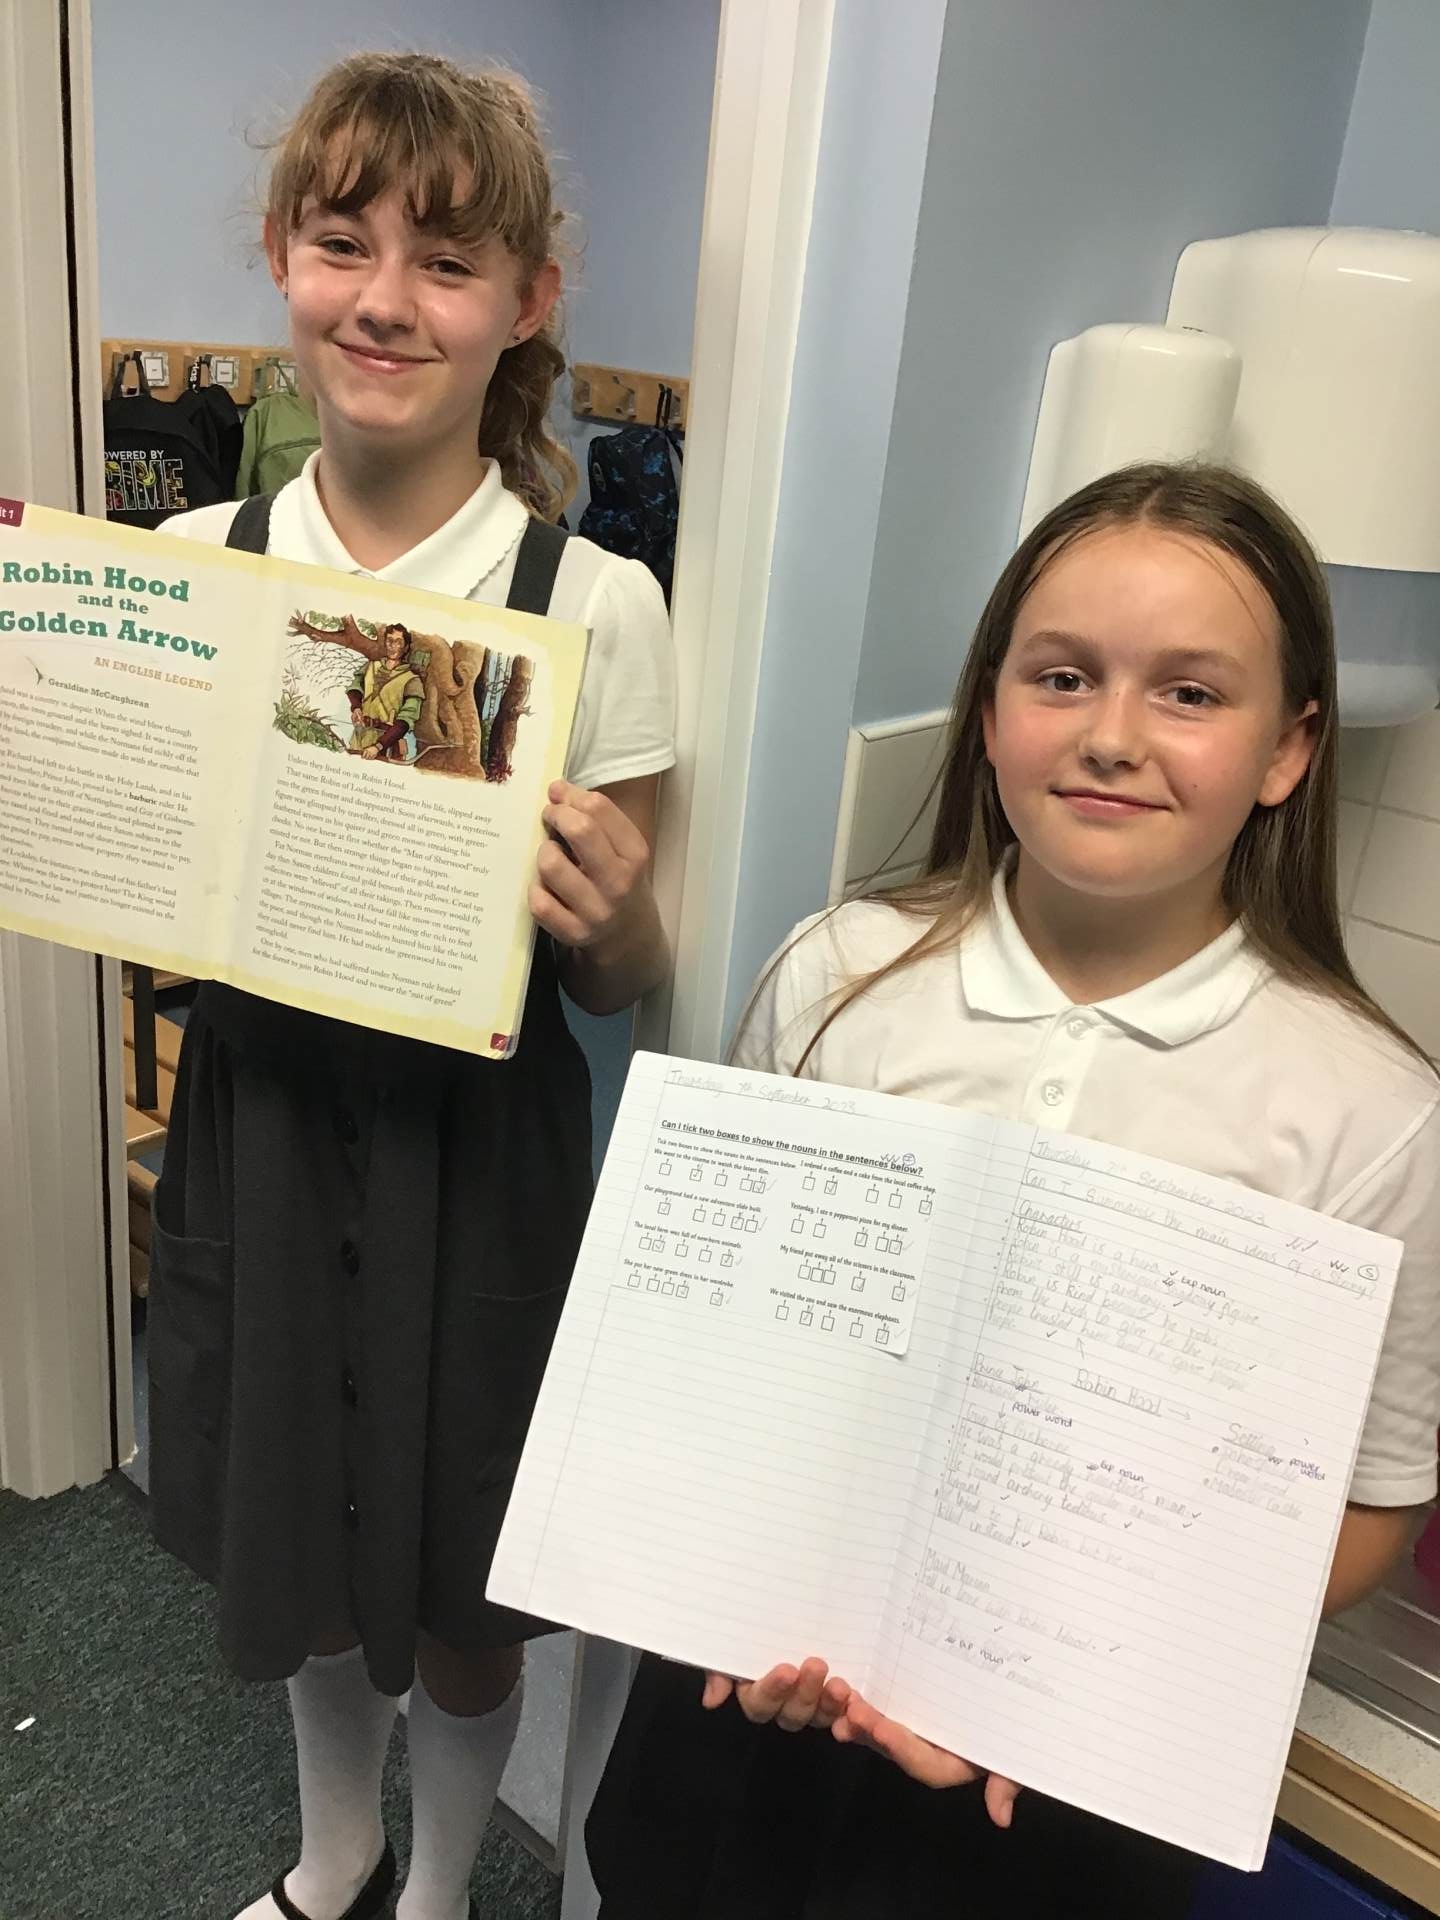 OWERED BY
it 1
Robin Hood
and the
Golden Arrow
AN ENGLISH LEGEND
Geraldine McCaughrean
land was a country in despair. When the wind blew through
the trees groaned and the leaves sighed. It was a country
by foreign invaders, and while the Normans fed richly off the
the land, the conquered Saxons made do with the crumbs that
left.
Richard had left to do battle in the Holy Lands, and in his
his brother, Prince John, proved to be a barbaric ruler. He
men like the Sheriff of Nottingham and Guy of Gisborne,
barons who sat in their granite castles and plotted to grow
they taxed and fined and robbed their Saxon subjects to the
starvation. They turned out-of-doors anyone too poor to pay,
too proud to pay, anyone whose property they wanted to
themselves.
of Locksley, for instance, was cheated of his father's land
Where was the law to protect him? The King would
him justice, but law and justice no longer existed in the
by Prince John.
Unless they lived on in Robin Hood.
That same Robin of Locksley, to preserve his life, slipped away
into the green forest and disappeared. Soon afterwards, a mysterious
figure was glimpsed by travellers, dressed all in green, with green-
feathered arrows in his quiver and green mosses streaking his
cheeks. No one knew at first whether the "Man of Sherwood" truly
existed or not. But then strange things began to happen.
Fat Norman merchants were robbed of their gold, and the next
day thin Saxon children found gold beneath their pillows. Cruel tax
collectors were "relieved" of all their takings. Then money would fly
in at the windows of widows, and flour fall like snow on starving
villages. The mysterious Robin Hood was robbing the rich to feed
the poor, and though the Norman soldiers hunted him like the hind,
they could never find him. He had made the greenwood his own
stronghold.
One by one, men who had suffered under Norman rule headed
for the forest to join Robin Hood and to wear the "suit of green"
5
Thursday 7th September 2023
Can I tick two boxes to show the nouns in the sentences below?
Tick two boxes to show the nouns in the sentences below.
We went to the cinema to watch the latest film.
Our playground had a new adventure slide built.
The local farm was full of newborn animals.
She put her new green dress in her wardrobe.
I ordered a coffee and a cake from the local coffee shop.
Yesterday, I ate a pepperoni pizza for my dinner.
My friend put away all of the scissors in the classroom.
We visited the zoo and saw the enormous elephants.
Thursday 7th September 2023
Can I summarise the main ideas of a story?
S
Characters
Robin Hood is a hero.
Robin is a figure
exp noun
Robin's skill is archery.
Robin is kind because he robs
from the rich to give to the poor.
people trusted him and he gave people
hope.
Prince John
Barbaric ruler
power word
Robin Hood
Setting
power
word
Castle
Guy of Gisborne
He was a greedy, merciless man.
exp noun
He would present the golden arrow.
He found archery tedious.
Tyrant
tried to kill Robin but he was
killed instead.
Maid Marian
Fell in love with Robin Hood.
exp noun